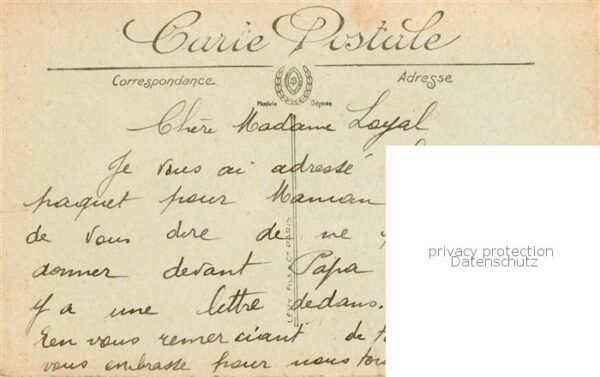 Carte Postale
Correspondance
Adresse
Modèle Déposé
Chère Madame Loyal
Je vous ai adressé
paquet pour Maman
de vous dire de ne
donner devant Papa
y a une lettre dedans.
En vous remerciant de
vous embrasse pour nous
LÉVY FILS & Cie PARIS
privacy protection
Datenschutz